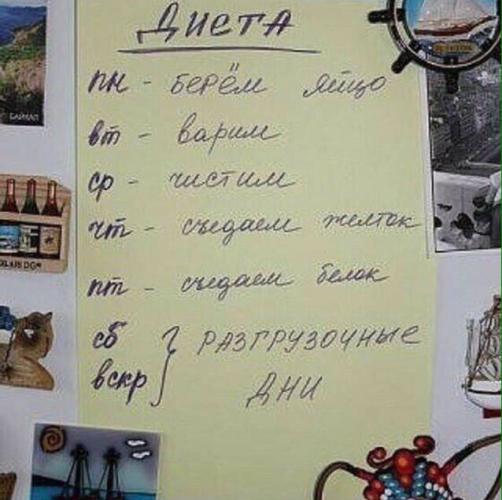 Диета
пн - берём яйцо
вт - варим
ср - чистим
чт - съедаем желток
пт - съедаем белок
сб } РАЗГРУЗОЧНЫЕ
вскр } ДНИ
БАЙКАЛ